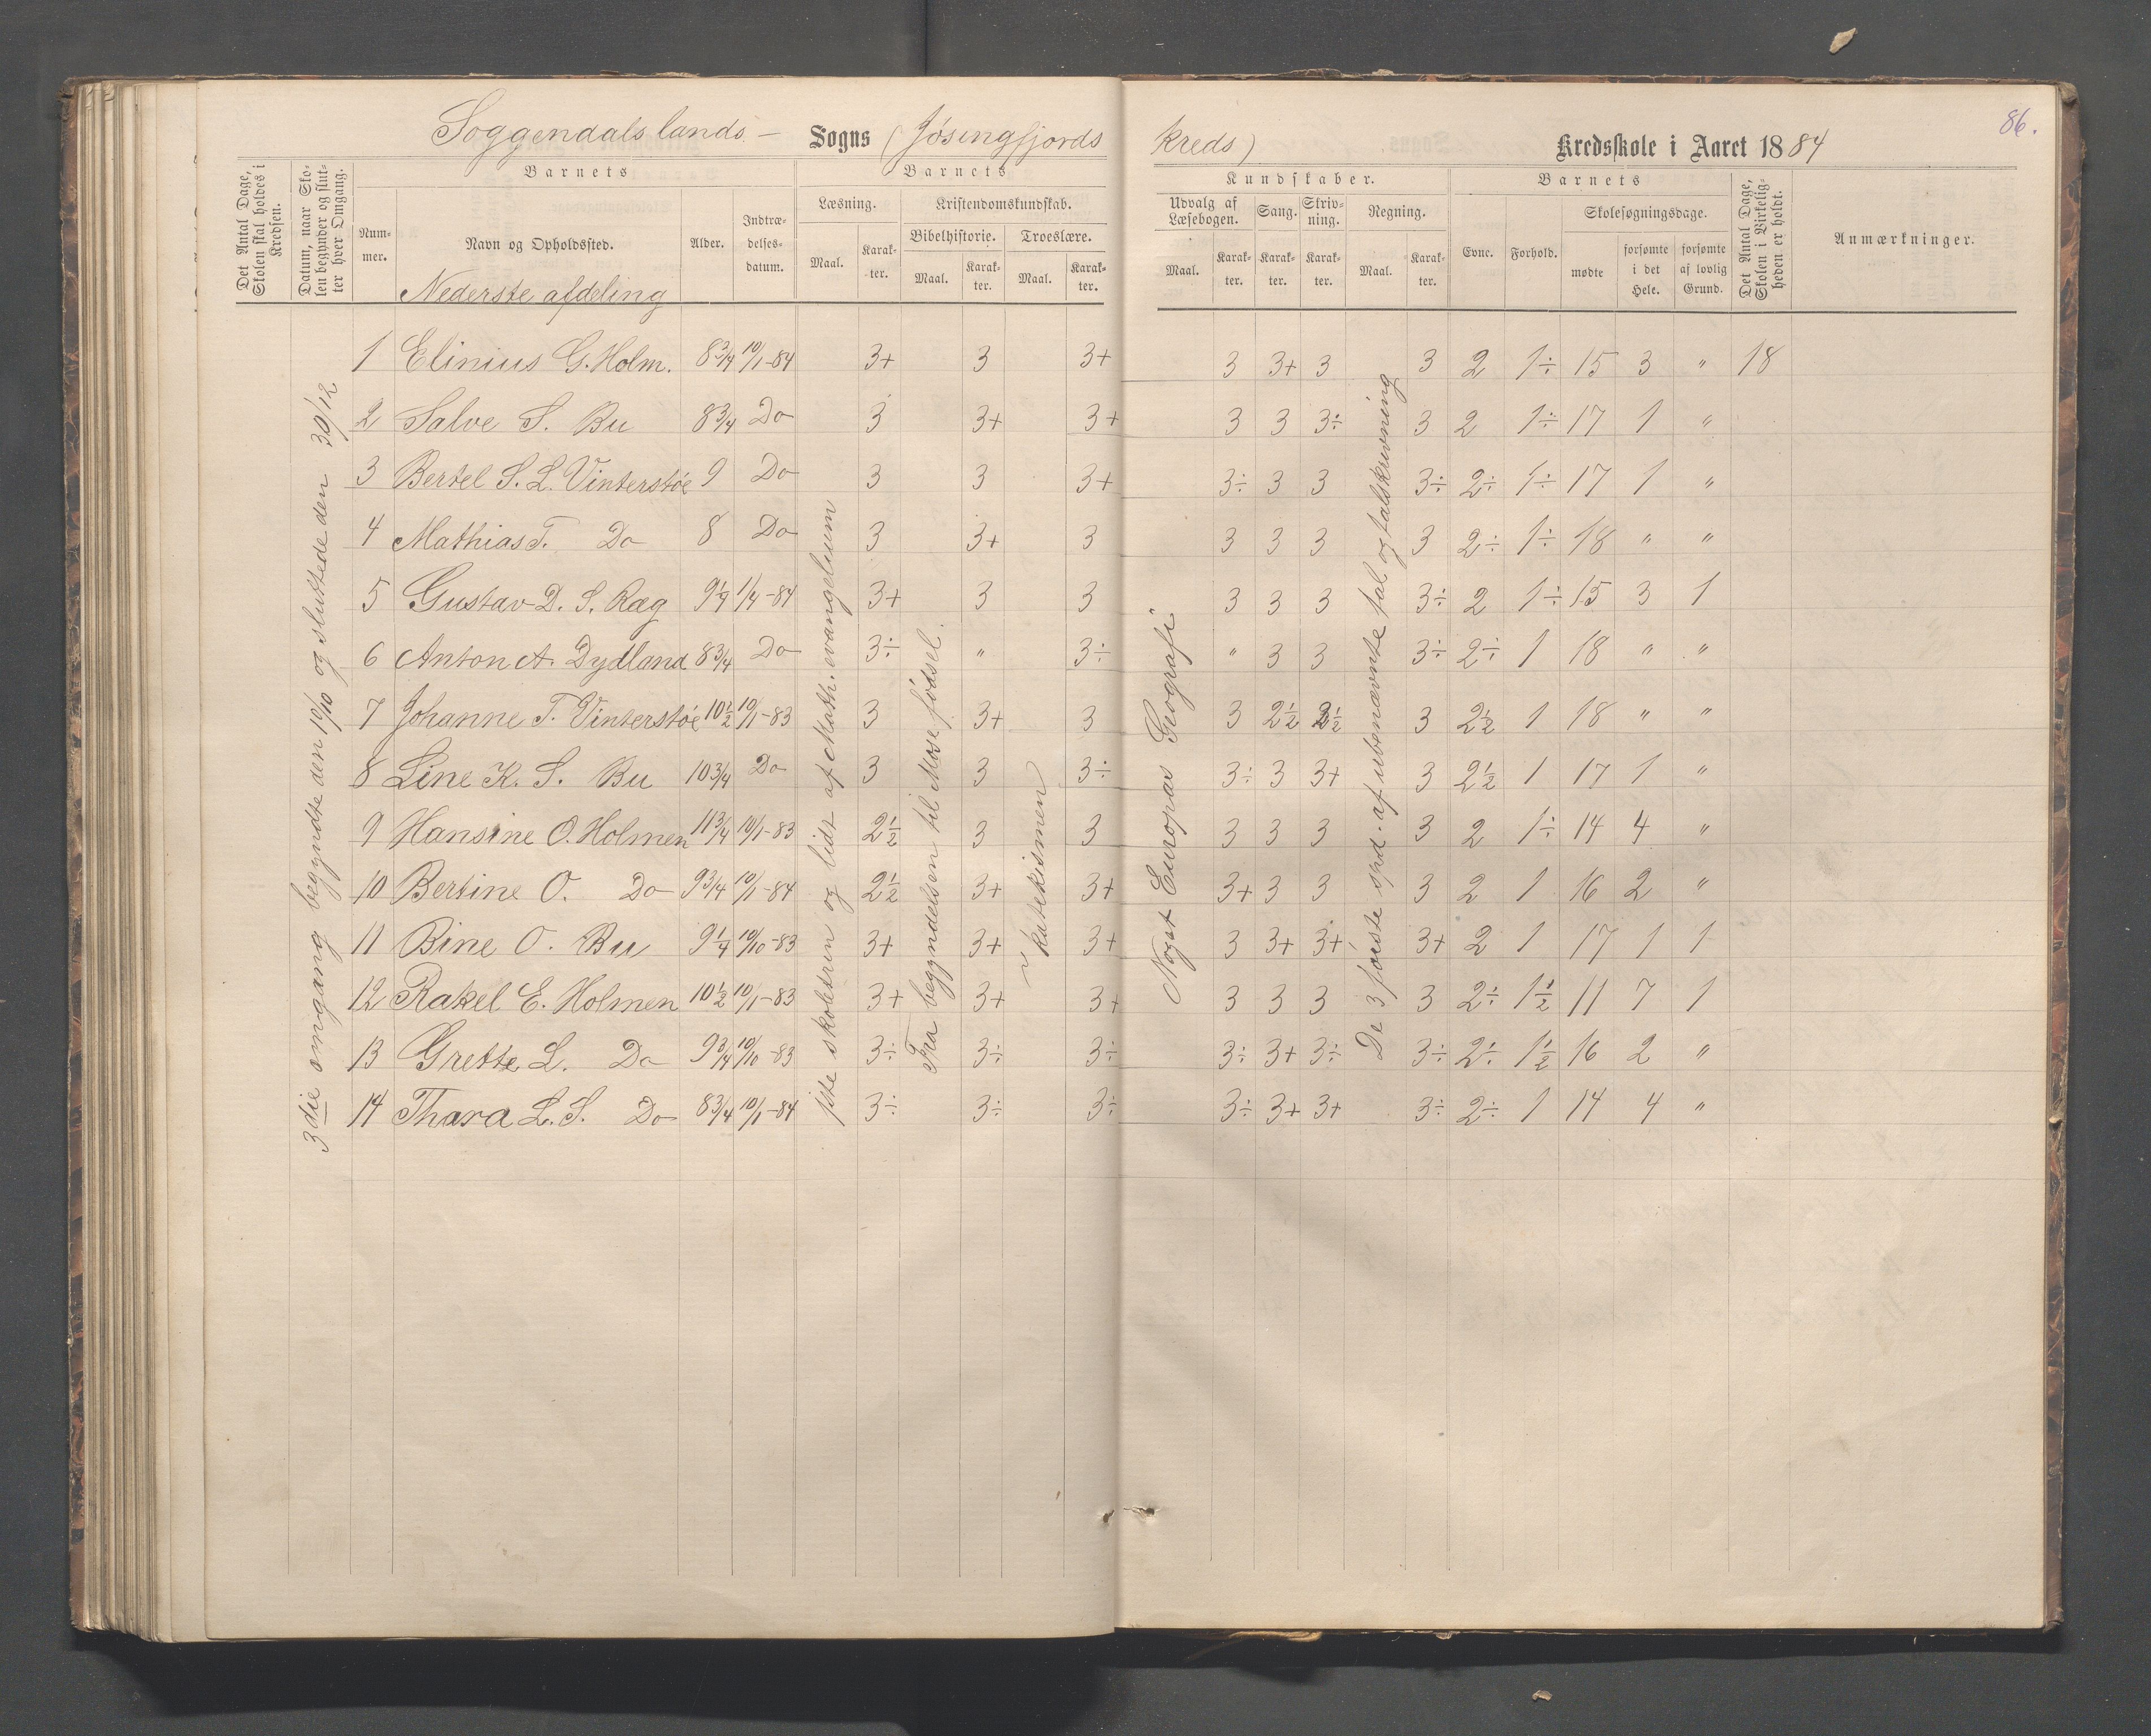 Soggendals lands – Sogns (Jøsingfjords kreds) Kredsskole i Aaret 1884
86.
Det Antal Dage, Skolen skal holdes i Kredsen.
Datum, naar Skolen begynder og slutter hver Omgang.
Barnets
Nummer.
Navn og Opholdssted.
Alder.
Indtrædelsesdatum.
Barnets
Læsning.
Maal.
Karakter.
Kristendomskundskab.
Bibelhistorie.
Maal.
Karakter.
Troeslære.
Maal.
Karakter.
Kundskaber.
Udvalg af Læsebogen.
Maal.
Karakter.
Sang.
Karakter.
Skrivning.
Karakter.
Regning.
Maal.
Karakter.
Barnets
Evne.
Forhold.
Skolesøgningsdage.
mødte
forsømte i det Hele.
forsømte af lovlig Grund.
Det Antal Dage, Skolen i Virkeligheden er holdt.
Anmærkninger.
Nederste afdeling
3die omgang begyndte den 10/10 og sluttede den 30/12
1 Elinius G. Holm. 8 3/4 10/1-84 3+ 3 3+ 3 3+ 3 3 2 1÷ 15 3 " 18
2 Salve S. Bu 8 3/4 Do 3 3+ 3+ 3 3 3÷ 3 2 1÷ 17 1 "
3 Bertel S. L. Vinterstøe 9 Do 3 3 3+ 3÷ 3 3 3÷ 2÷ 1÷ 17 1 "
4 Mathias T. Do 8 Do 3 3+ 3 3 3 3 3 2÷ 1÷ 18 " "
5 Gustav D. S. Ræg 9 1/4 1/4-84 3+ 3 3 3 3 3 3÷ 2 1÷ 15 3 1
6 Anton A. Dydland 8 3/4 Do 3÷ " 3÷ " 3 3 3÷ 2÷ 1 18 " "
7 Johanne T. Vinterstøe 10 1/2 10/1-83 3 3+ 3 3 2 1/2 2 1/2 3 2 1/2 1 18 " "
8 Line K. S. Bu 10 3/4 Do 3 3 3÷ 3÷ 3 3+ 3 2 1/2 1 17 1 "
9 Hansine O. Holmen 11 3/4 10/1-83 2 1/2 3 3 3 3 3 3 2 1÷ 14 4 "
10 Bertine O. Do 9 3/4 10/1-84 2 1/2 3+ 3+ 3+ 3 3 3 2 1 16 2 "
11 Bine O. Bu 9 1/4 10/10-83 3+ 3+ 3+ 3 3+ 3+ 3+ 2 1 17 1 1
12 Rakel E. Holmen 10 1/2 10/1-83 3+ 3+ 3+ 3 3 3 3 2÷ 1 1/2 11 7 1
13 Grette L. Do 9 3/4 10/10-83 3÷ 3÷ 3÷ 3÷ 3+ 3÷ 3÷ 2÷ 1 1/2 16 2 "
14 Thara L. S. Do 8 3/4 10/1-84 3÷ 3÷ 3÷ 3÷ 3+ 3+ 3÷ 2÷ 1 14 4 "
skoletrin og lidt af Math. evangelium
Fra begyndelsen til Mose fødsel.
i katekismen
Noget Europas Geografi
De 3 første spd. af ubenævnte tal og talskrivning